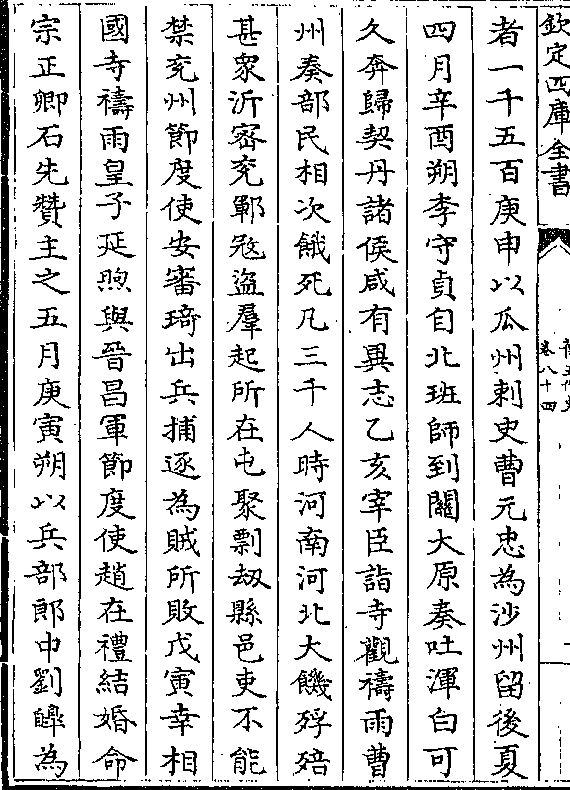 欽定四庫全書
卷八十四
者一千五百庚申以瓜州刺史曹元忠為沙州留後夏
四月辛酉朔李守貞自北班師到闕大原奏吐渾白可
久奔歸契丹諸侯咸有異志乙亥宰臣詣寺觀禱雨曹
州奏部民相次餓死凡三千人時河南河北大饑殍殕
甚衆沂密兖鄆宼盜羣起所在屯聚剽刼縣邑吏不能
禁兖州節度使安審琦出兵捕逐為賊所敗戊寅幸相
國寺禱雨皇子延煦與晉昌軍節度使趙在禮結婚命
宗正卿石先贊主之五月庚寅朔以兵部郎中劉皥為